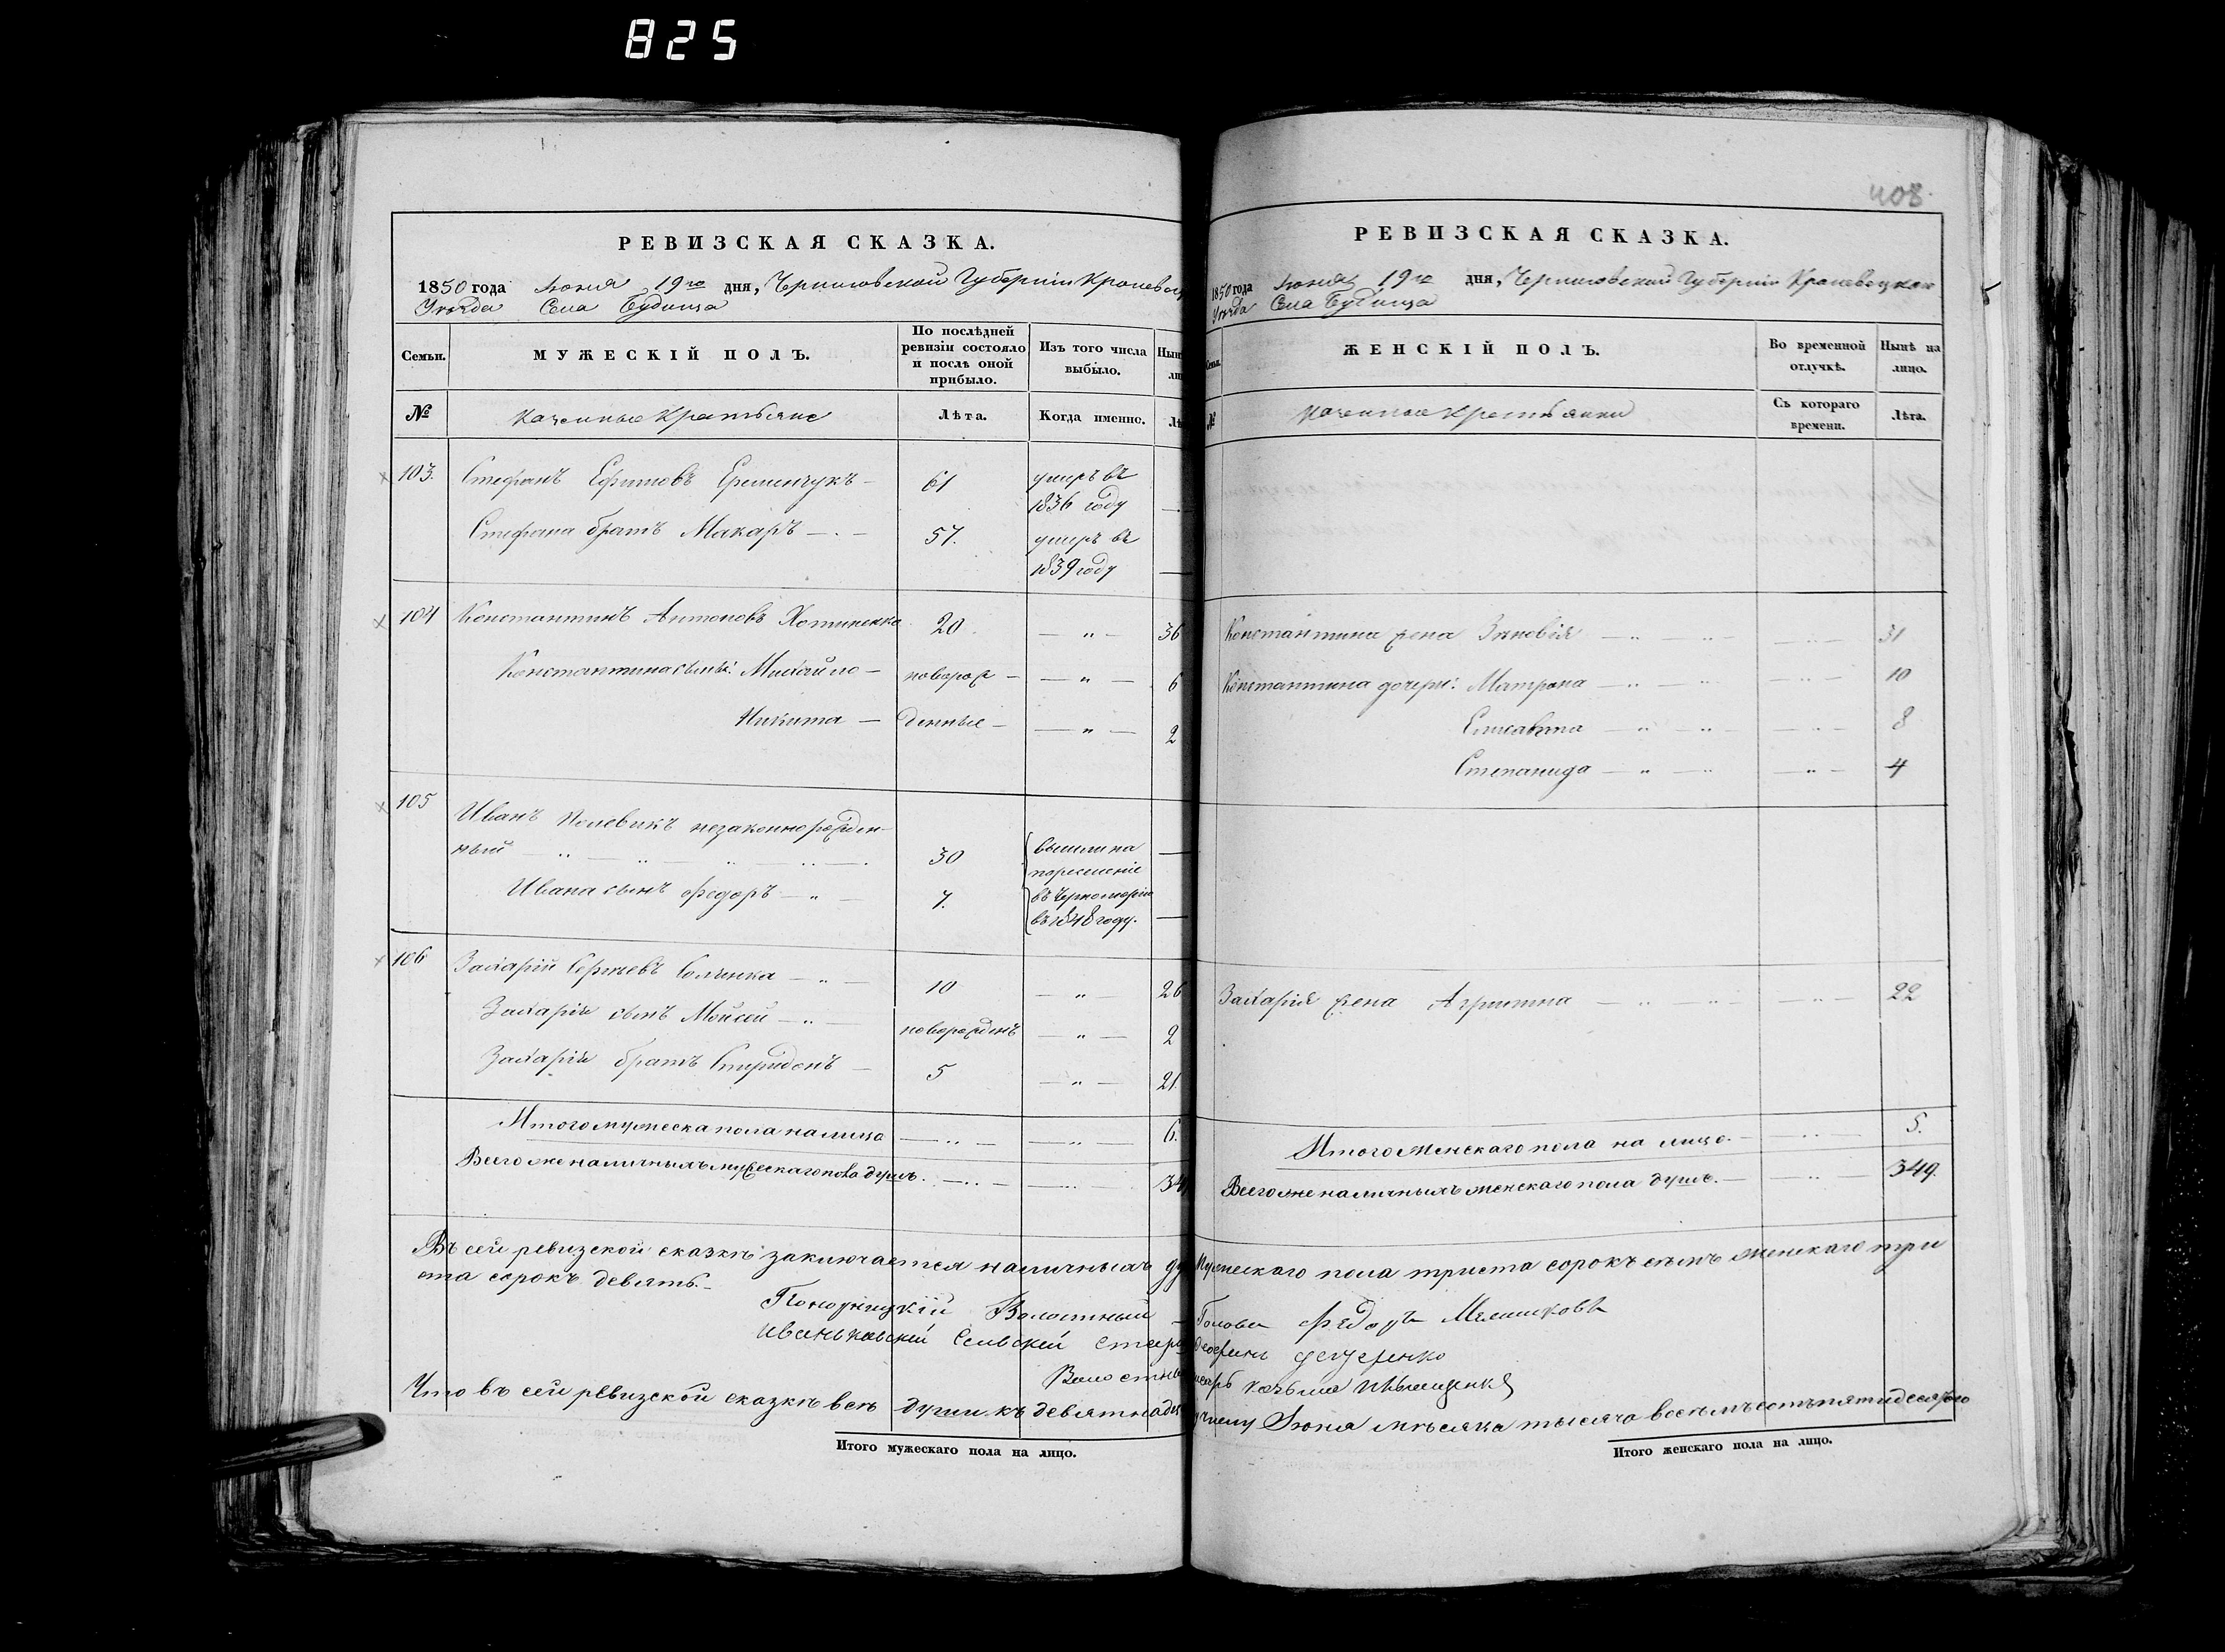 825
РЕВИЗСКАЯ СКАЗКА.
1850 года Іюня 19го дня, Черниговской Губерніи
Уѣзда Села Будища
Семьи. МУЖЕСКІЙ ПОЛЪ. По послѣдней ревизіи состояло и послѣ оной прибыло. Изъ того числа выбыло.
№ Казенные Крестьяне Лѣта. Когда именно.
103. Стефанъ Ефимовъ 61 умеръ въ 1836 году —
Стефана братъ Макаръ — . — 57. умеръ въ 1839 году —
104 Константинъ Антоновъ Хотиненко 20 — " — 36
Константина сынъ: Михайло — новорож — — " — 6
Никита — денные — — " — 2
105 Иванъ Полевикъ незаконнорожден-
ный — 30 вышли на —
Ивана сынъ Федоръ — " — 7. переселеніе въ Черноморію въ 1848 году. —
106 Захарій Сергѣевъ — " — 10 — " — 26
Захарія сынъ Мойсей — " — новорожденъ — " — 2
Захарія братъ Спиридонъ — 5 — " — 21.
Итого мужеска пола на лицо — " — — " — 6.
Всего же наличныхъ мужескаго пола душъ. — " — — " —
408.
РЕВИЗСКАЯ СКАЗКА.
1850 года Іюня 19го дня, Черниговской Губерніи Кролевецкаго
Уѣзда Села Будища
ЖЕНСКІЙ ПОЛЪ. Во временной отлучкѣ. Нынѣ на лицо.
№ Казенные Крестьянки Съ котораго времени. Лѣта.
Константина жена Зѣновія — " — " — " — 31
Константина дочери: Матрона — " — " — " — 10
Елисавета — " — " — " — 8
Степанида — " — " — " — 4
Захарія жена Агрипина — " — " — " — 22
Итого женскаго пола на лицо. — — " — 5.
Всего же наличныхъ женскаго пола душъ. — — " — 349.
Въ сей ревизской сказкѣ заключается наличныхъ мужескаго пола триста сорокъ семь женскаго три
ста сорокъ девять.
Понорницкій Волостный Голова Федоръ
Сельскій
Волостный
Что въ сей ревизской сказкѣ всѣ души къ Іюня мѣсяца тысяча восемьсотъ пятидесятого
Итого мужескаго пола на лицо.
Итого женскаго пола на лицо.